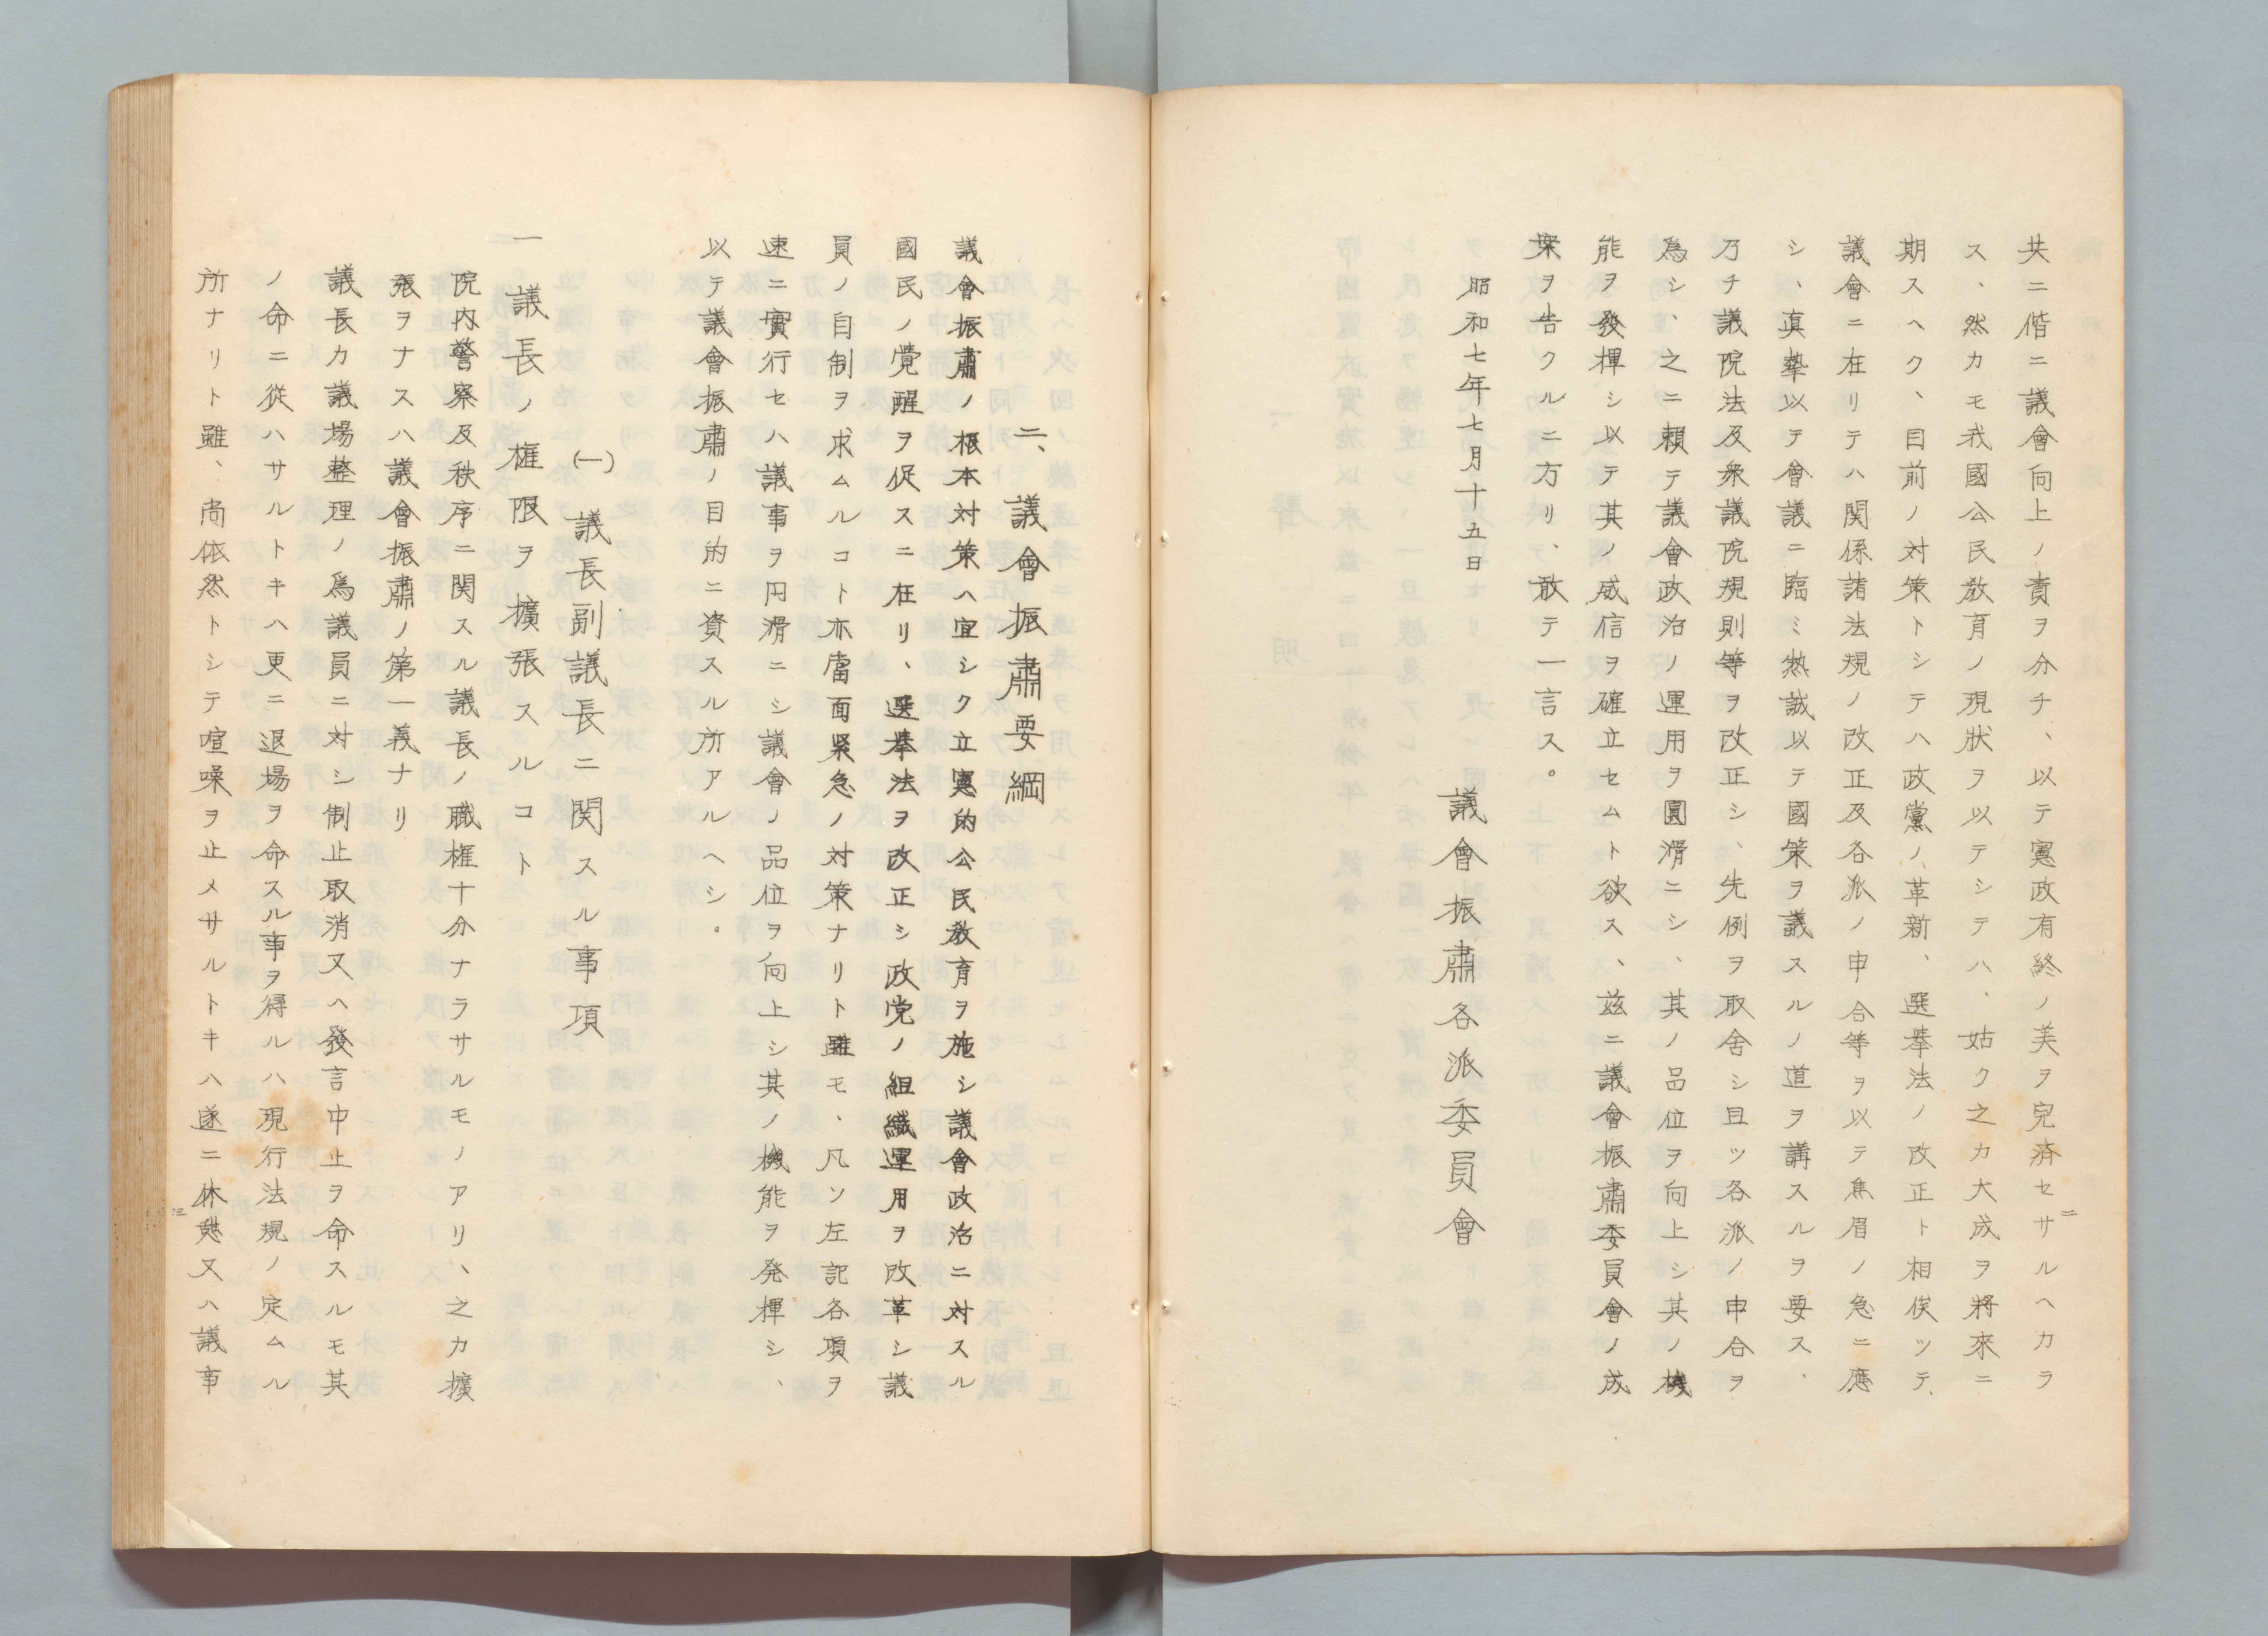 共ニ偕ニ議會向上ノ責ヲ分チ、以テ憲政有終ノ美ヲ完濟セサルヘカラ
ス、然カモ我國公民敎育ノ現狀ヲ以テシテハ、姑ク之カ大成ヲ將來ニ
期スヘク、目前ノ対策トシテハ政黨ノ革新、選擧法ノ改正ト相俟ツテ、
議會ニ在リテハ関係諸法規ノ改正及各派ノ申合等ヲ以テ焦眉ノ急ニ應
シ、真摯以テ會議ニ臨ミ熱誠以テ國策ヲ議スルノ道ヲ講スルヲ要ス、
乃チ議院法及衆議院規則等ヲ改正シ、先例ヲ取舍シ且ツ各派ノ申合ヲ
爲シ、之ニ頼テ議會政治ノ運用ヲ圓滑ニシ、其ノ品位ヲ向上シ其ノ機
能ヲ發揮シ以テ其ノ威信ヲ確立セムト欲ス、茲ニ議會振肅委員會ノ成
案ヲ告クルニ方リ、敢テ一言ス。
昭和七年七月十五日
議會振肅各派委員會
二
二、議會振肅要綱
議會振肅ノ根本対策ハ宜シク立憲的公民敎育ヲ施シ議會政治ニ対スル
國民ノ覺醒ヲ促スニ在リ、選擧法ヲ改正シ政党ノ組織運用ヲ改革シ議
員ノ自制ヲ求ムルコト亦當面緊急ノ対策ナリト雖モ、凡ソ左記各項ヲ
速ニ實行セハ議事ヲ円滑ニシ議會ノ品位ヲ向上シ其ノ機能ヲ発揮シ、
以テ議會振肅ノ目的ニ資スル所アルヘシ。
(一)議長副議長ニ関スル事項
一 議長ノ権限ヲ擴張スルコト
院内警察及秩序ニ関スル議長ノ職権十分ナラサルモノアリ、之カ擴
張ヲナスハ議會振肅ノ第一義ナリ
議長カ議場整理ノ爲議員ニ対シ制止取消又ハ發言中止ヲ命スルモ其
ノ命ニ從ハサルトキハ更ニ退場ヲ命スル事ヲ得ルハ現行法規ノ定ムル
所ナリト雖、尚依然トシテ喧噪ヲ止メサルトキハ遂ニ休憩又ハ議事
三